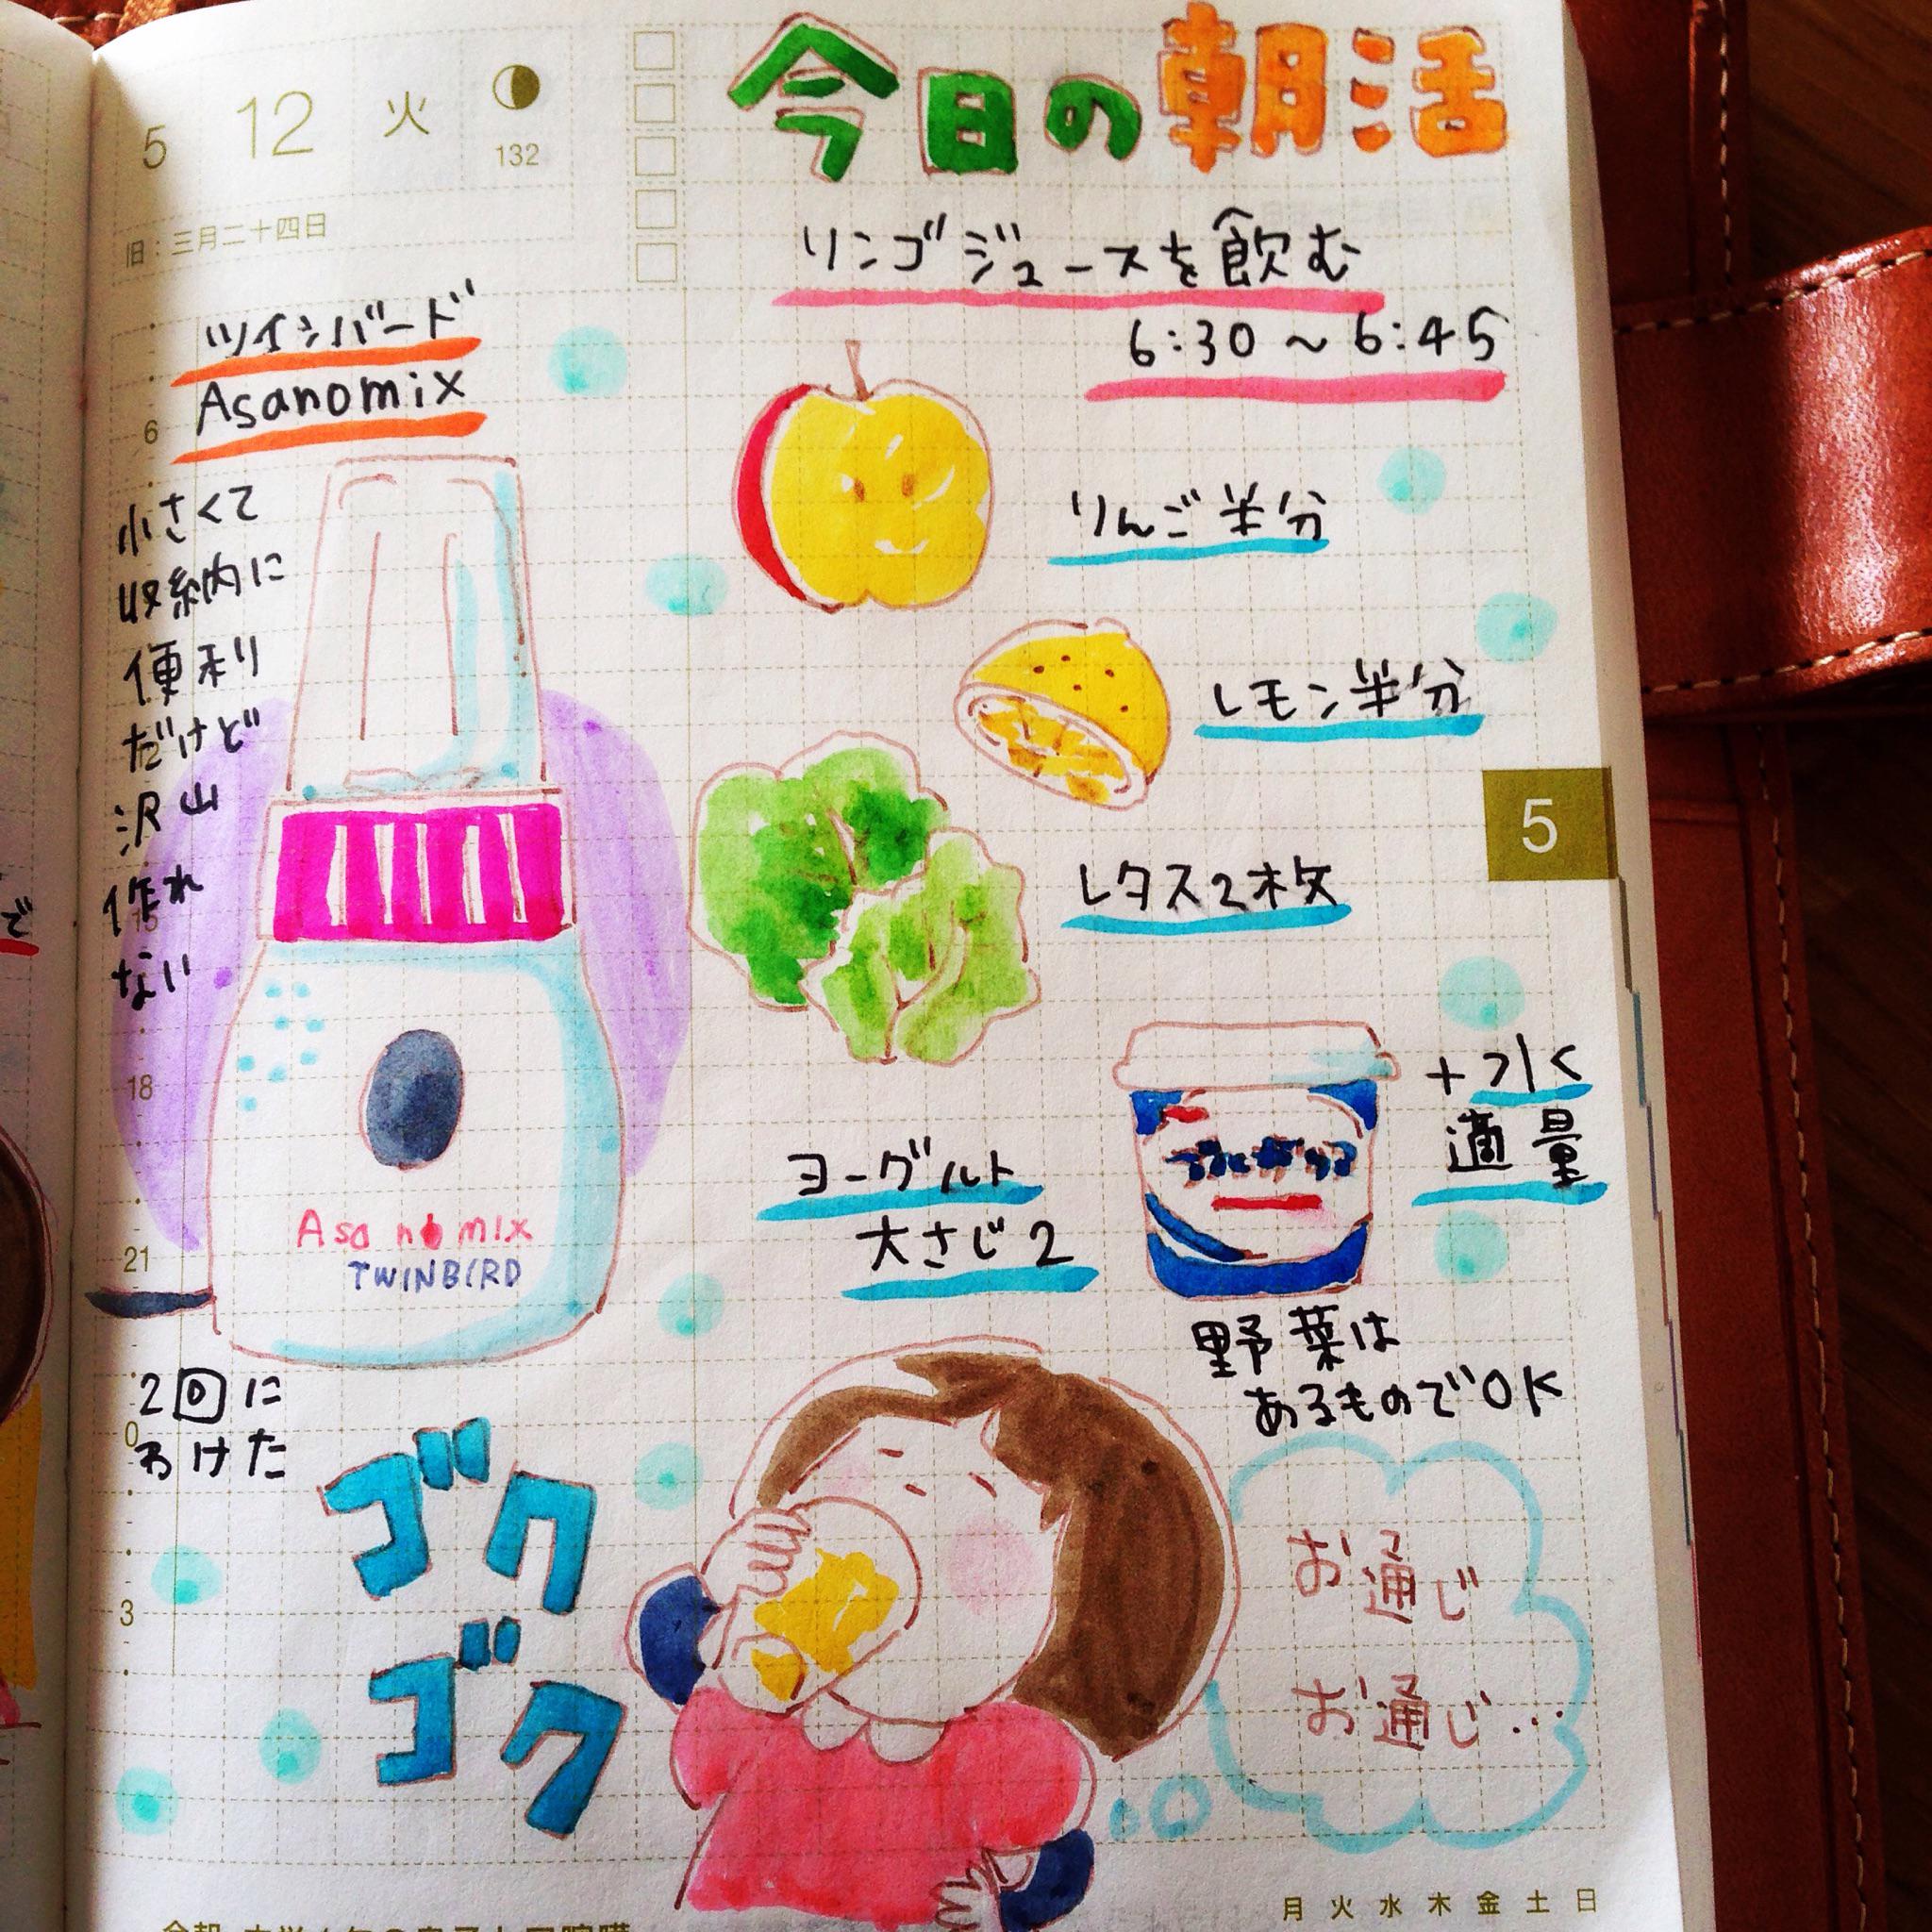 5 12 火
132
旧：三月二十四日
今日の朝活
リンゴジュースを飲む
6:30～6:45
ツインバード
Asanomix
小さくて
収納に
便利
だけど
沢山
作れ
ない
6
15
18
21
0
3
りんご半分
レモン半分
レタス2枚
5
+水
適量
ヨーグルト
大さじ2
Asanomix
TWINBIRD
野菜は
あるものでOK
2回に
わけた
ゴク
ゴク
お通じ
お通じ…
で
月 火 水 木 金 土 日